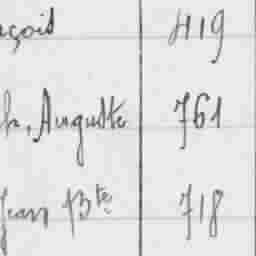 çois 419
h. Auguste 761
Jean Bte 718